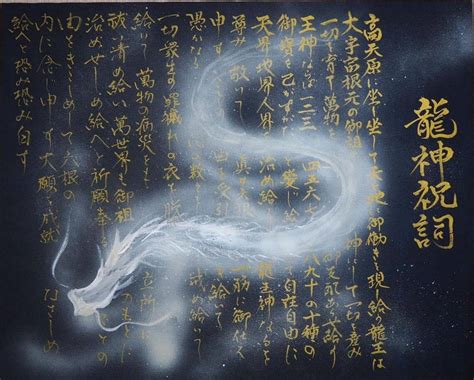 龍神祝詞
高天原に坐し坐して天と地に御働きを現し給う龍王は
大宇宙根元の御祖の にして一切を産み
一切を育て萬物を御支配あらせ給う
王神なれば一二三四五六七八九十の十種の
御寶を己がすがたと変じ給いて自在自由に
天界地界人界を治め給う龍王神なるを
尊み敬いて真の六根一筋に御仕え
を給いて
愚かなる 戒め給いて
一切衆生の罪穢れの衣を脱
給いて萬物の病災をも立所に
祓い清め給い萬世界も御祖のもとに
治めせしめ給へと祈願奉ることの
由をきこしめして六根の
内に念じ申す大願を成就なさしめ
給へと恐み恐み白す